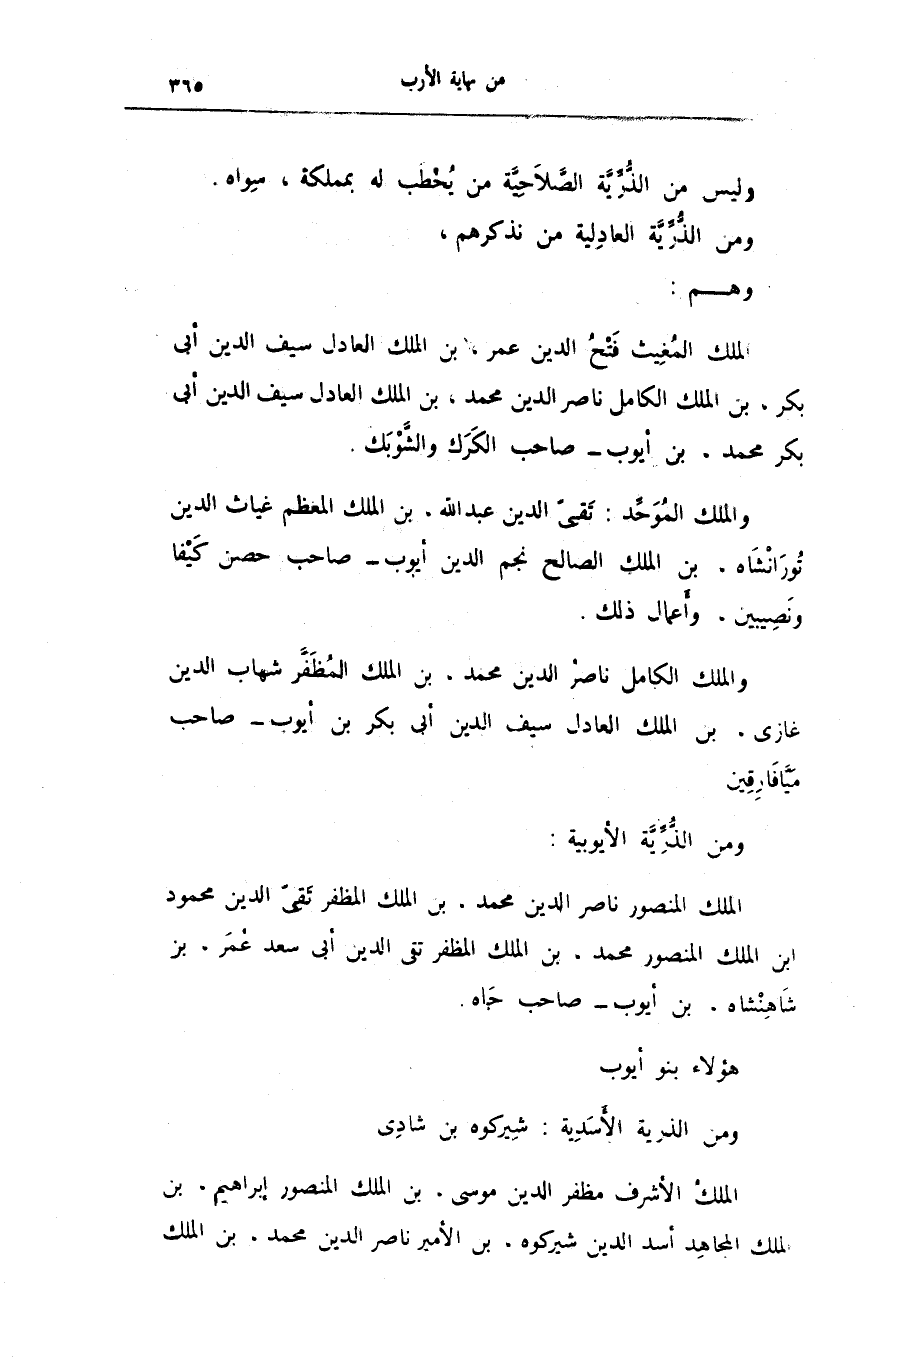 من نهاية الأرب ٣٦٥
وليس من الذُّرِّيَّة الصَّلاَحِيَّة من يُخْطَب له بمملكة ، سِواه .
ومن الذُّرِّيَّة العادِلية من نذكرهم ،
وهـــم :
الملك المُغِيث فَتْحُ الدين عمر ، بن الملك العادل سيف الدين أبى
بكر . بن الملك الكامل ناصر الدين محمد ، بن الملك العادل سيف الدين أبى
بكر محمد . بن أيوب ــ صاحب الكَرَك والشَّوْبَك .
والملك المُوَحَّد : تَقىّ الدين عبدالله . بن الملك المعظم غياث الدين
تُورَانْشَاه . بن الملك الصالح نجم الدين أيوب ــ صاحب حصن كَيْفا
ونَصِيبين . وأَعمال ذلك .
والملك الكامل ناصرْ الدين محمد . بن الملك المُظَفَّر شهاب الدين
غازى . بن الملك العادل سيف الدين أبى بكر بن أيوب ــ صاحب
مَيَّافَارِقِين
ومن الذُّرِّيَّة الأيوبية :
الملك المنصور ناصر الدين محمد . بن الملك المظفر تَقىّ الدين محمود
ابن الملك المنصور محمد . بن الملك المظفر تقى الدين أبى سعد عْمَر . بن
شَاهِنْشاه . بن أيوب ــ صاحب حَماه .
هؤلاء بنو أيوب
ومن الذرية الأَسَدِية : شِيركوه بن شادِى
الملكُ الأشرف مظفر الدين موسى . بن الملك المنصور إبراهيم . بن
الملك المجاهِد أسد الدين شيركوه . بن الأمير ناصر الدين محمد . بن الملك